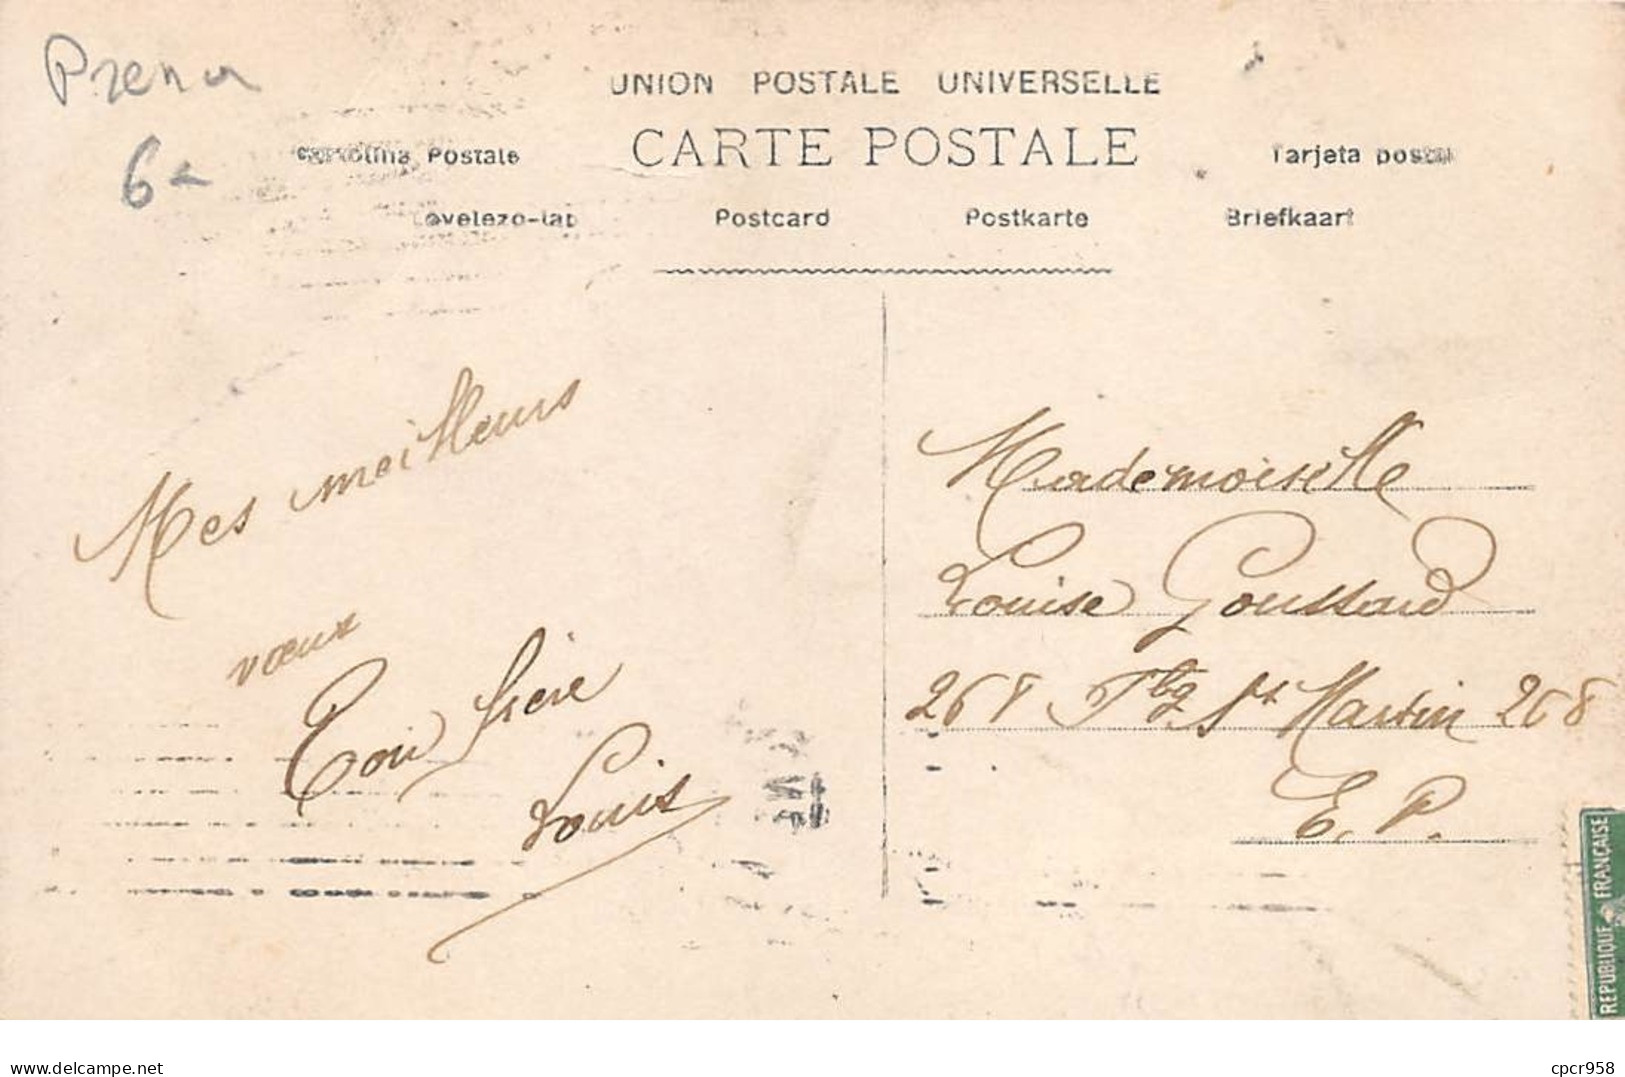 Prena
6
UNION POSTALE UNIVERSELLE
CARTE POSTALE
Cartolina Postale
Tarjeta postal
Levelezo-lap
Postcard
Postkarte
Briefkaart
Mes meilleurs
vœux
Ton frère
Louis
Mademoiselle
Louise Goussard
268 Fbg St Martin 268
E. P.
REPUBLIQUE FRANÇAISE
www.delcampe.net
cpcr958